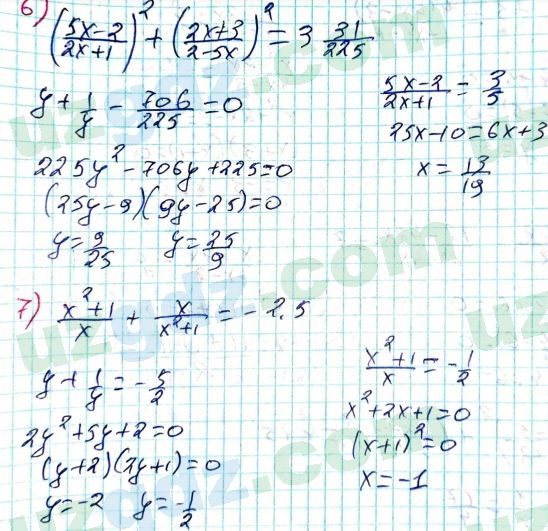 6) ((5x-2)/(2x+1))² + ((2x+3)/(2-5x))² = 3 31/225
y + 1/y - 706/225 = 0
225y² - 706y + 225 = 0
(25y-9)(9y-25) = 0
y = 9/25 y = 25/9
(5x-2)/(2x+1) = 3/5
25x-10 = 6x+3
x = 13/19
7) (x²+1)/x + x/(x²+1) = -2.5
y + 1/y = -5/2
2y² + 5y + 2 = 0
(y+2)(2y+1) = 0
y = -2 y = -1/2
(x²+1)/x = -1/2
x² + 2x + 1 = 0
(x+1)² = 0
x = -1
uzgdz.com